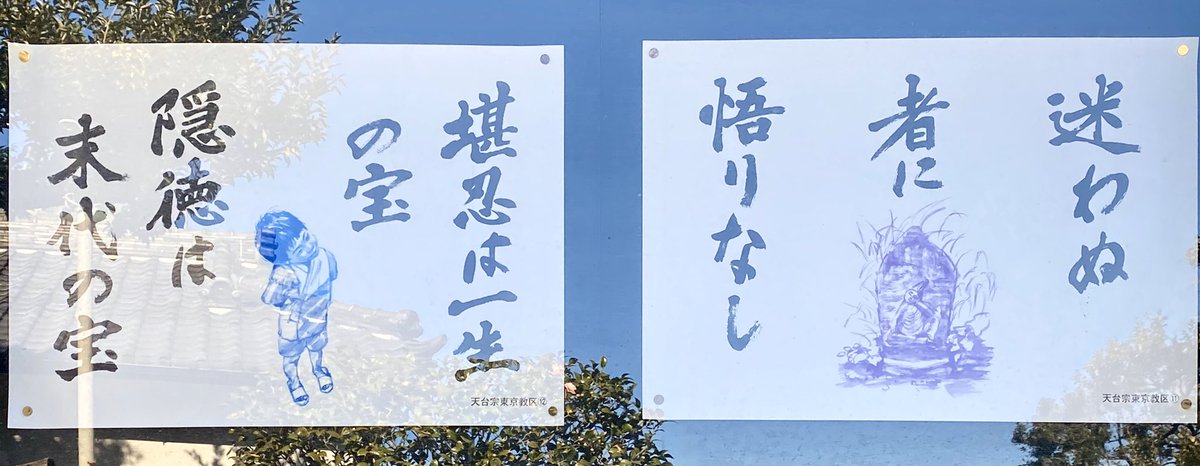 迷わぬ
者に
悟りなし
天台宗東京教区⑪
堪忍は一生
の宝
隠徳は
末代の宝
天台宗東京教区⑫